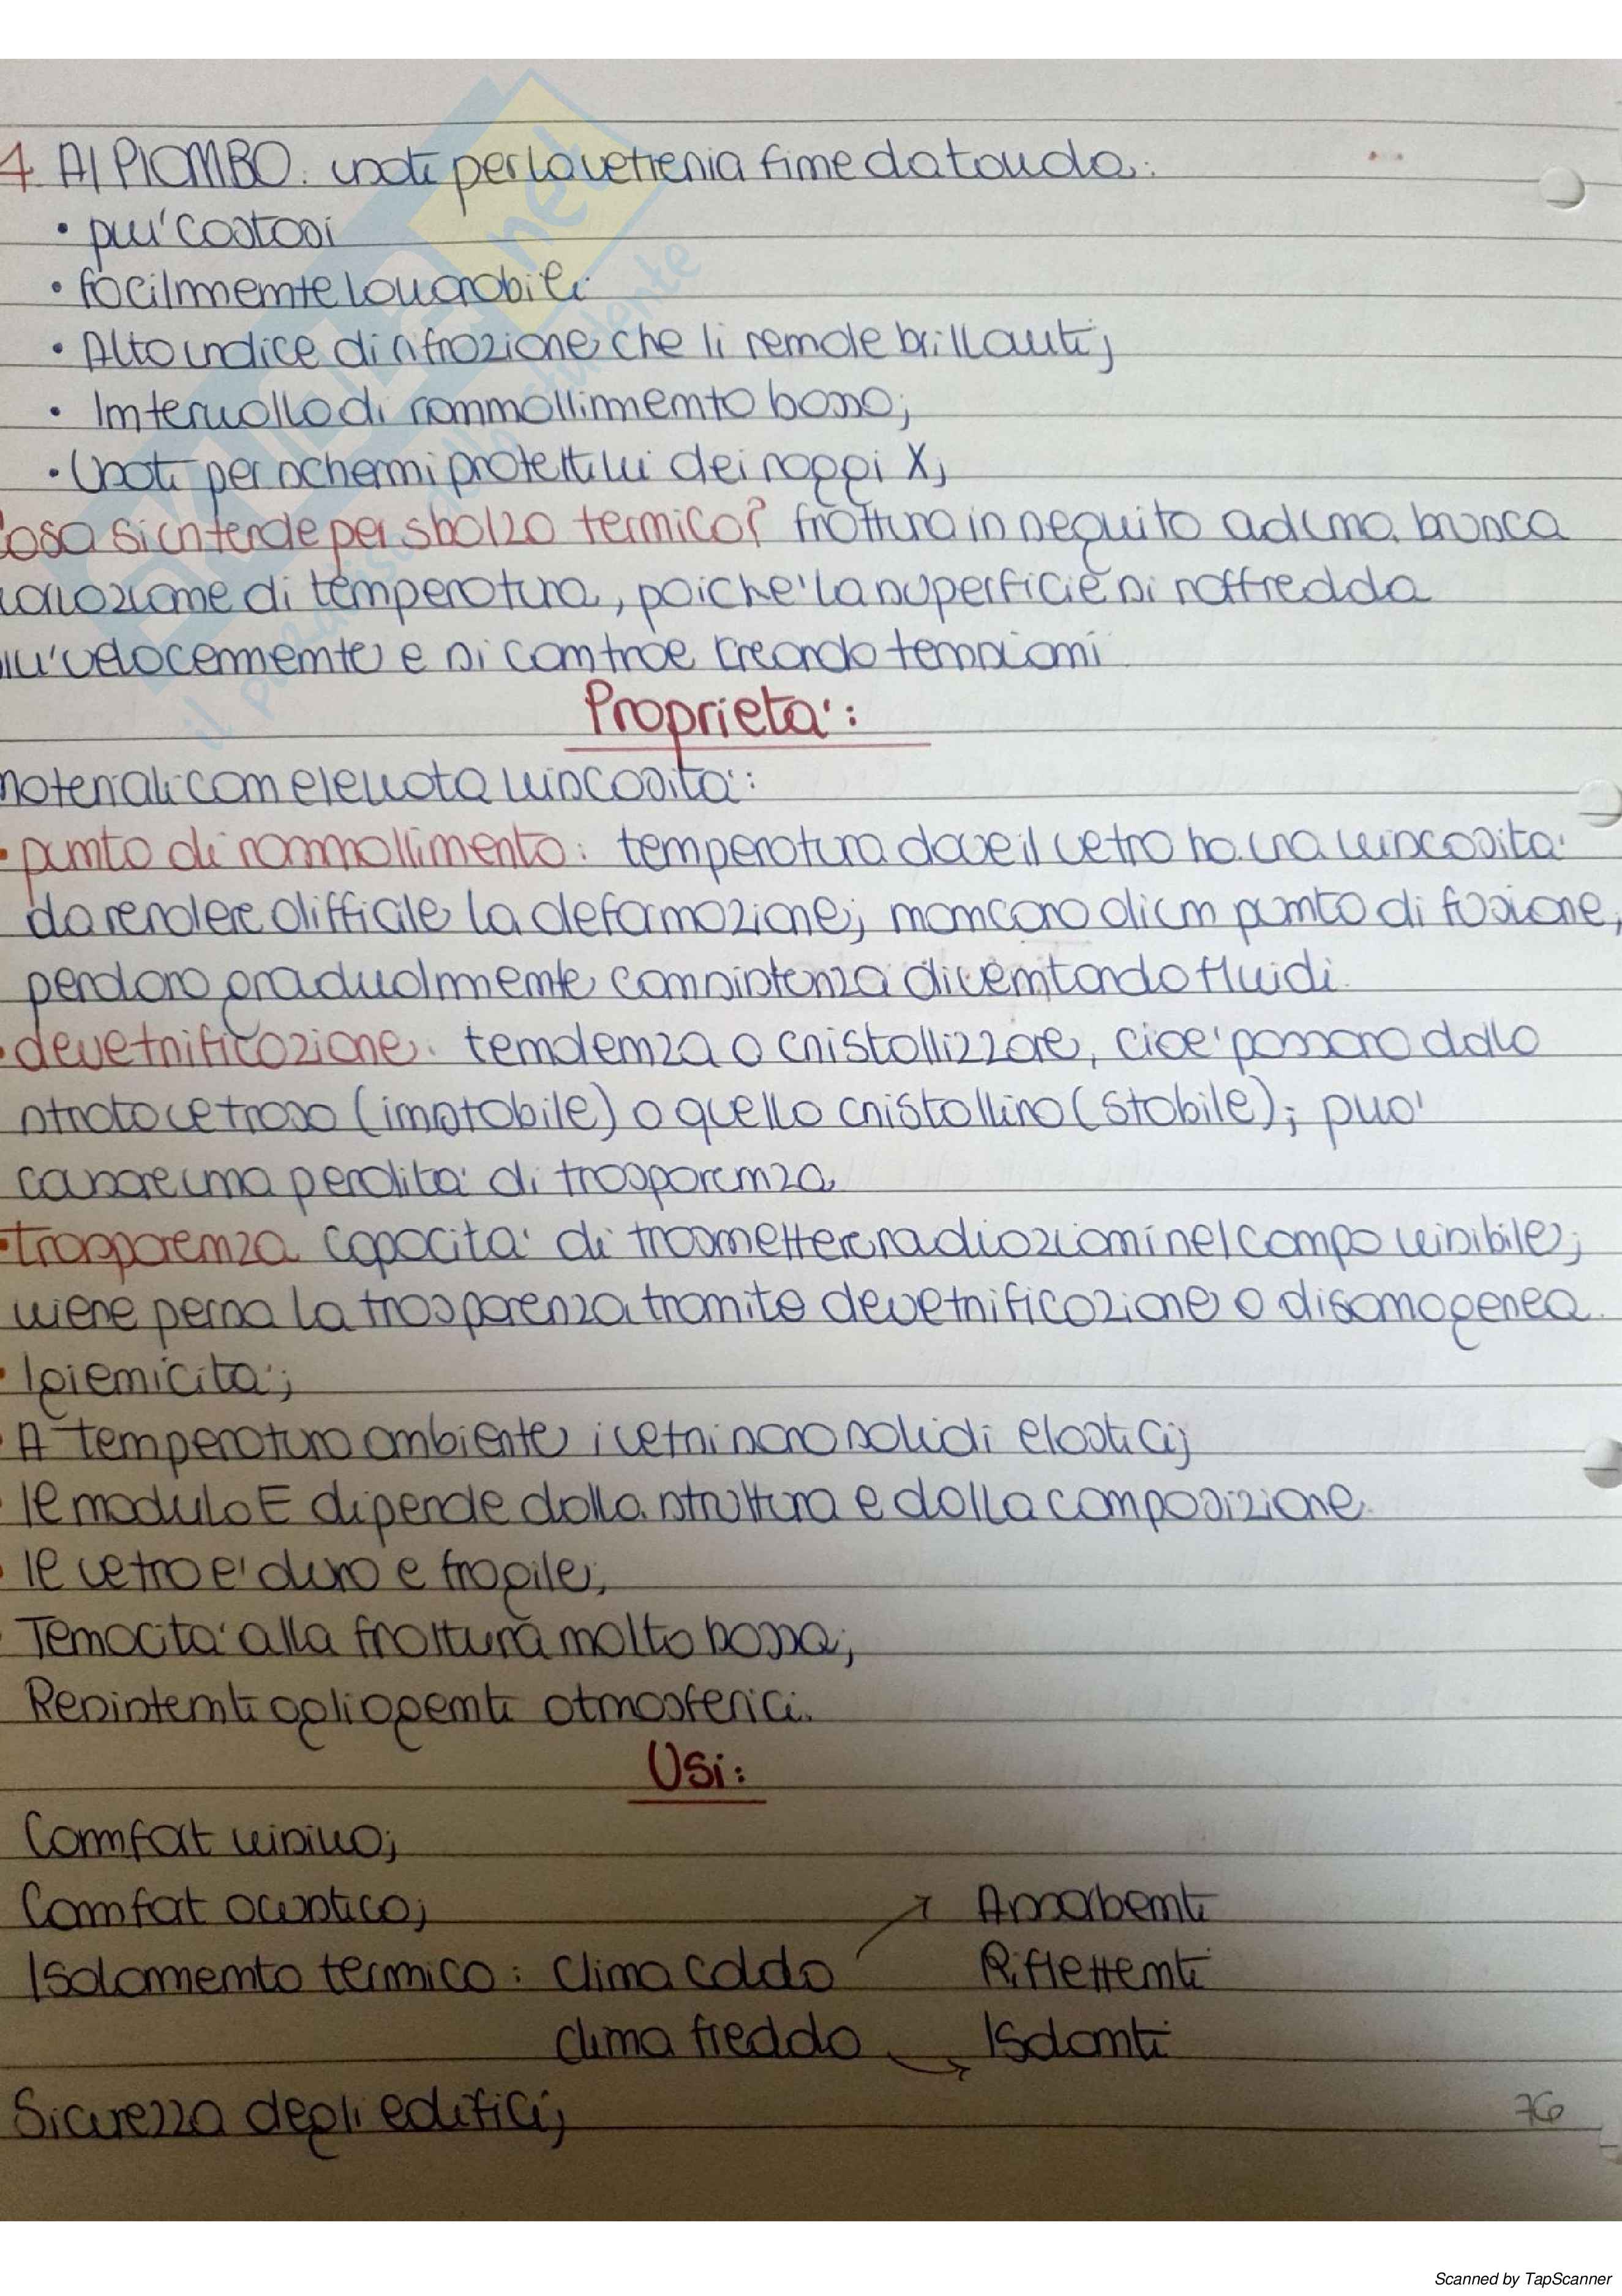 4. Al PIOMBO. usati per la vetreria fine da tavola:
• piu' costosi
• facilmente lavorabili
• Alto indice di rifrazione che li rende brillanti;
• Intervallo di rammollimento basso;
• Usati per schermi protettivi dei raggi X;
Cosa si intende per sbalzo termico? frattura in seguito ad una brusca
variazione di temperatura, poiche' la superficie si raffredda
piu' velocemente e si contrae creando tensioni
Proprieta':
materiali con elevata viscosita':
• punto di rammollimento: temperatura dove il vetro ha una viscosita'
da rendere difficile la deformazione; mancano di un punto di fusione,
perdono gradualmente consistenza diventando fluidi.
• devetrificazione: tendenza a cristallizzare, cioe' passano dallo
strato vetroso (instabile) a quello cristallino (stabile); puo'
causare una perdita di trasparenza
• trasparenza capacita' di trasmettere radiazioni nel campo visibile;
viene persa la trasparenza tramite devetrificazione o disomogenea.
• Igienicita';
• A temperatura ambiente i vetri sono solidi elastici;
• Il modulo E dipende dalla struttura e dalla composizione.
• Il vetro e' duro e fragile;
• Tenacita' alla frattura molto bassa;
Resistenti agli agenti atmosferici.
Usi:
Comfort visivo;
Comfort acustico; Assorbenti
Isolamento termico: clima caldo Riflettenti
clima freddo Isolanti
Sicurezza degli edifici;
76
Scanned by TapScanner